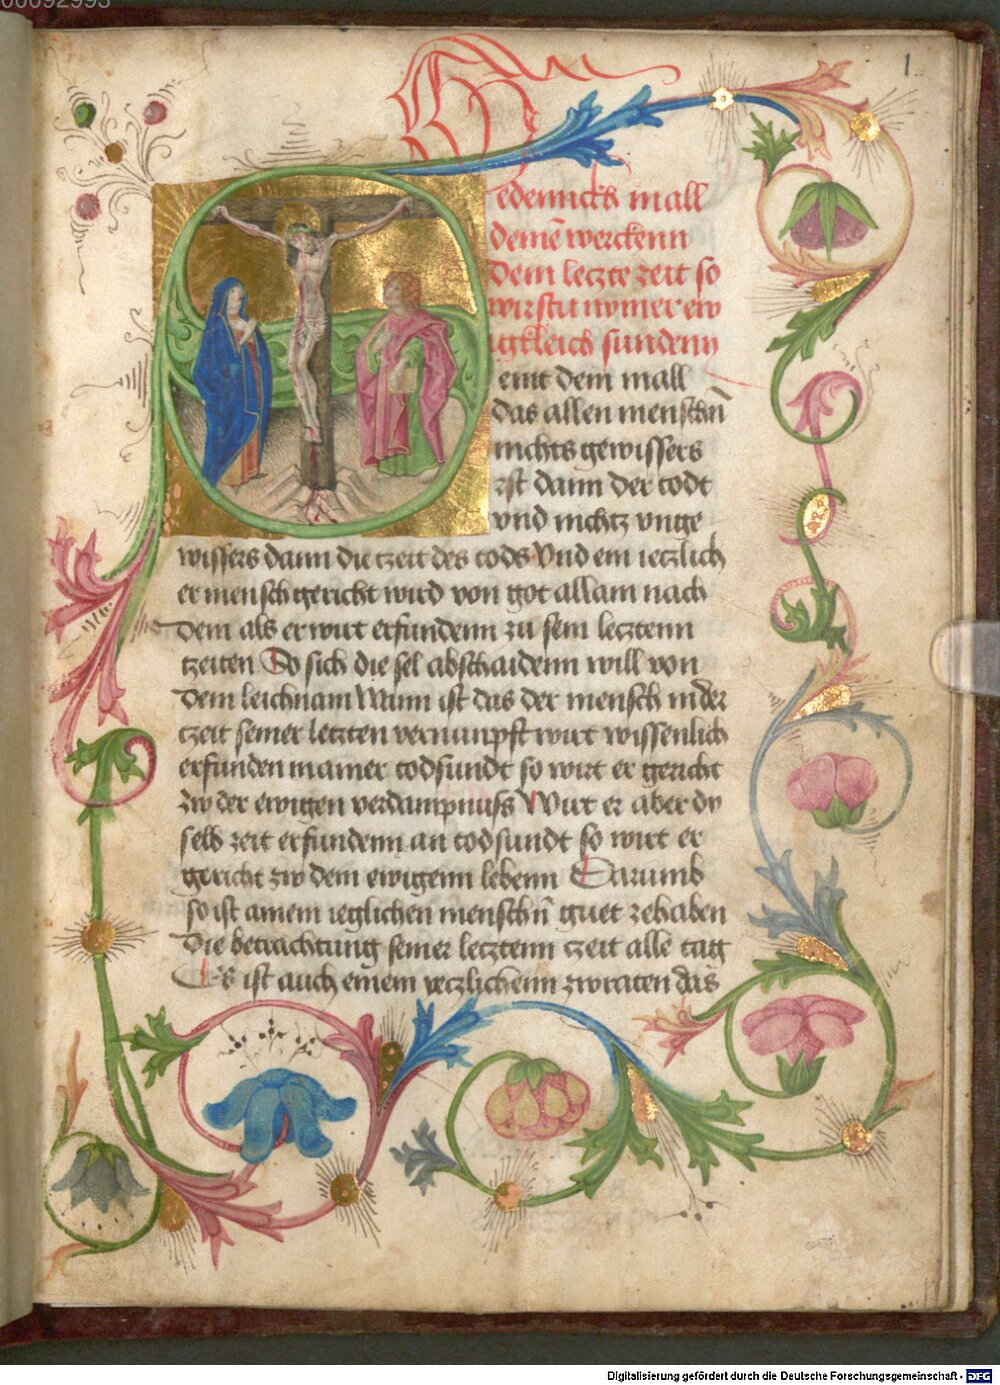 00092993
1
Gedennckh in all
deinē werckenn
dein leczte zeit so
wirstu nymer ew
igkleich sundenn
Seint dem mall
das allen menschn̄
nichts gewissers
ist dann der todt
vnd nichtz vnge
wissers dann die tzeit des tods Vnd ein ietzlich
er mensch gericht wird von got allain nach
dem als er wirt erfundenn zu sein lecztenn
tzeiten So sich die sel abschaidenn will von
dem leichnam Wann ist das der mensch in der
tzeit seiner letzten vernunpft wirt wissenlich
erfunden in ainer todsundt so wirt er gericht
zw der ewigen verdampnuss Wirt er aber dy
selb zeit erfundenn an todsundt so wirt er
gericht zw dem ewigenn lebenn Darumb
so ist ainem ieglichen menschn̄ guet zehaben
die betrachtung seiner lecztenn tzeit alle tag
Es ist auch einem yeczlichenn zw raten das
Digitalisierung gefördert durch die Deutsche Forschungsgemeinschaft - DFG